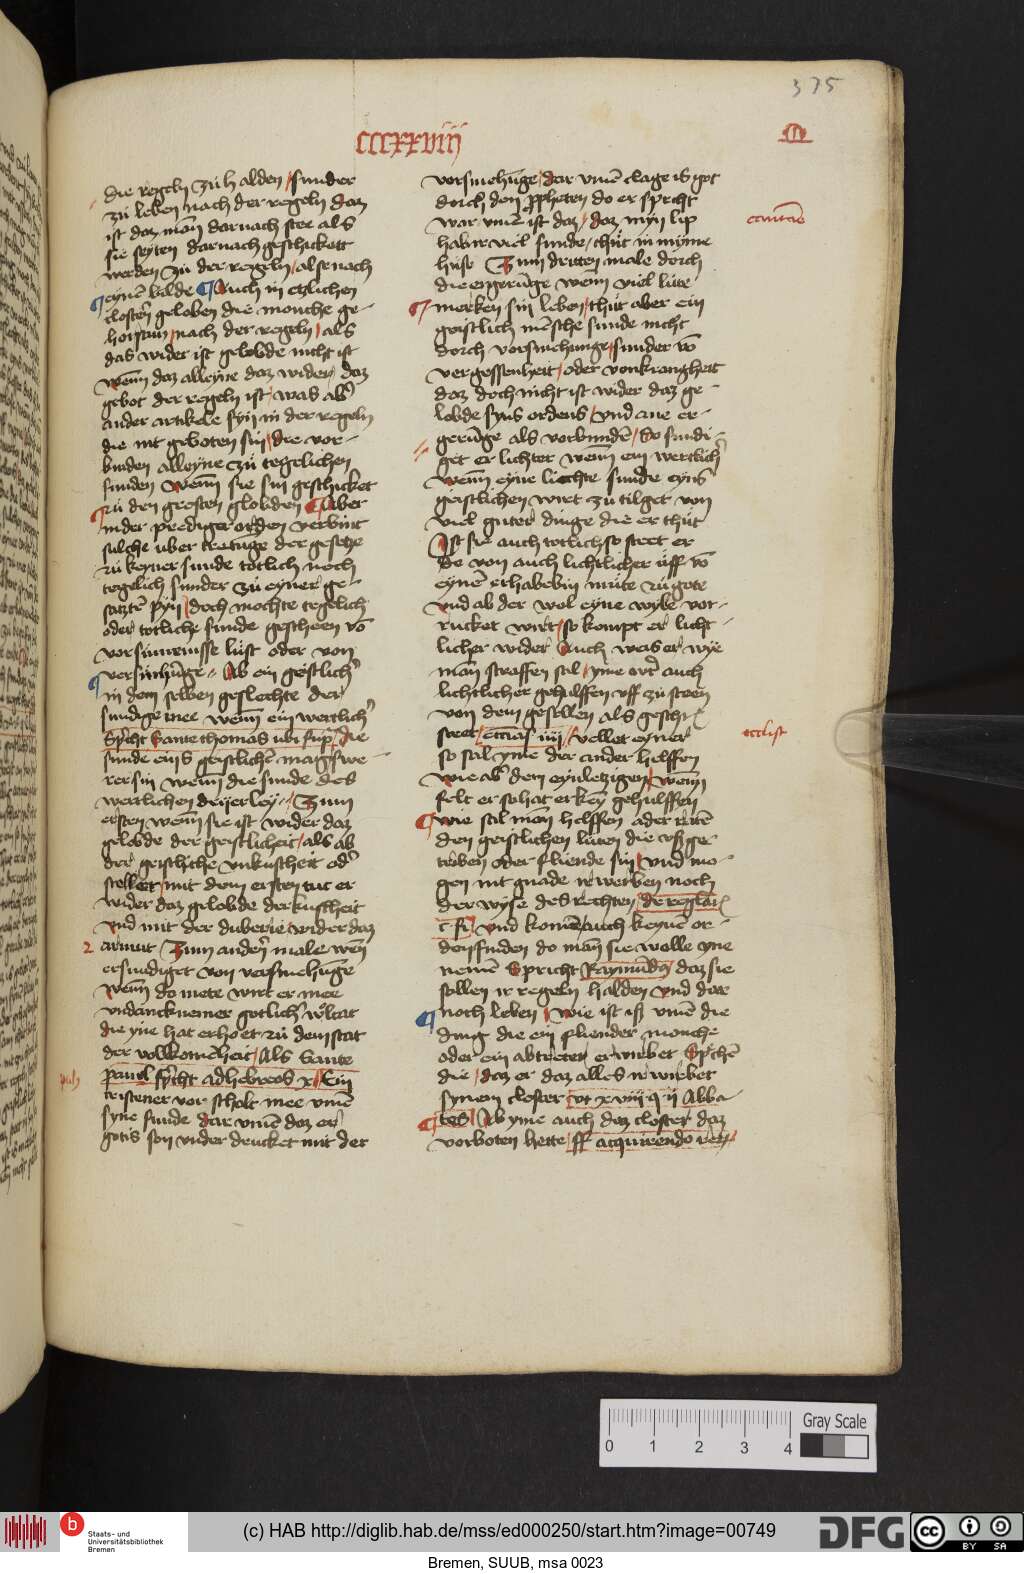 375
cccxxviij
die regeln zů halden / sunder
zů leben nach der regeln daz
ist daz man darnach stee als
sie seyten darnach geschickett
werden zů der regeln / also nach
eynē bilde Auch in etzlichen
clostern geloben die monche ge-
horsam / nach der regeln / als
das wider ist gelobde nicht ist
wenn daz alleyne daz wider daz
gebot der regeln ist / was abˀ
ander artikele syn in der regeln
die nit geboten sin / die vor-
binden alleyne zů tegelichen
sunden Wenn sie sin geschicket
zů den grosten globden Aber
in der prediger orden verbint
sulche uber tretunge der gesetze
zů keyner sunde totlich noch
tegelich sunder zů eyner ge-
satztē pyn / doch mochte tegelich
oder totliche sunde gescheen vō
vorsumenisse lust oder von
versmehūge Ab ein geistlichˀ
in dem selben geslechte der
sundige mee wenn ein wertlichˀ
Spricht Sante thomas ubi sup̄ / die
sunde eins geistlichē mag swe-
rer sin wenn die sunde des
wertlichen dryerley Zum
ersten wenn sie ist wider daz
gelobde der geistlicheit / als ab
der geistliche unkuscheit odˀ
stellet / mit dem ersten tut er
wider daz gelobde der kuscheit
vnd mit der duberie wider daz
2 armut Zum andern male wen
er sundiget von versmehūge
wenn do mete wirt er mee
vndancknemer gotlichˀ woltat
die yne hat erhoet zů dem stat
der vollkomēheit / Als Sante
paul spricht ad hebreos x Ein
cristener vor scholt mee vmē
syne sunde dar vmē daz er
gotis son vnder drucket mit der
vorsmehūge / dar vmē clage is got
dorch den ppheten do er spricht
war vmē ist daz / daz myn lip
habir viel sunde / thut in myme
huse Zum dritten male dorch
die ergerūge wenn viel lute
merken sin leben / thut aber ein
geistlich mēsche sunde nicht
dorch vorsmehunge / sunder vō
vergessenheit / oder von krangheit
daz doch nicht ist wider daz ge-
lobde syns ordens / vnd ane er-
gerūge als vorbundē / So sundi-
get er lichter wenn ein wertlichˀ
wenn eyne liechte sunde eynˀ
geistlichen wirt zů tilget von
viel guter dinge die er thut
Ist sie auch totlich so steet er
do von auch lichtlicher uff vō
eynē erhabebin mute zů gote
vnd ab der wol eyne wyle vor-
rucket wirt / so kompt er licht-
licher wider Auch was er wye
man straffen sal / yme wirt auch
lichtlicher gehulffen uff zů steen
von dem gesellen als geschr
steet / eccūas iiij / vellet eyner
so sal yme der ander helffen
wie abˀ dem eynletzigen / wenn
felt er so hat er keyn gehulffen
Wie sal man helffen ader ratē
den geistlichen luten die usz ge-
triben oder fliende sin / vnd mo-
gen nit gnade ir werben noch
der wyse des rechten / de regular
c fi vnd komē auch keynē or-
den finden do man sie wolle yne
nemē Spricht Raymūdꝰ daz sie
sollen ir regeln halden vnd dar
noch leben Wie ist isz vmē die
ding die ein fliender monche
oder ein abtreter erwirbet Sprechē
die / daz er daz alles ir wirbet
synem closter / vt xviij q ij Abba
tes / Ab yme auch daz closter daz
vorboten hette / ff acquirendo rerum
ecclīast
(c) HAB http://diglib.hab.de/mss/ed000250/start.htm?image=00749
b
Staats- und
Universitätsbibliothek
Bremen
DFG
cc
BY SA
Gray Scale
0 1 2 3 4
Bremen, SUUB, msa 0023